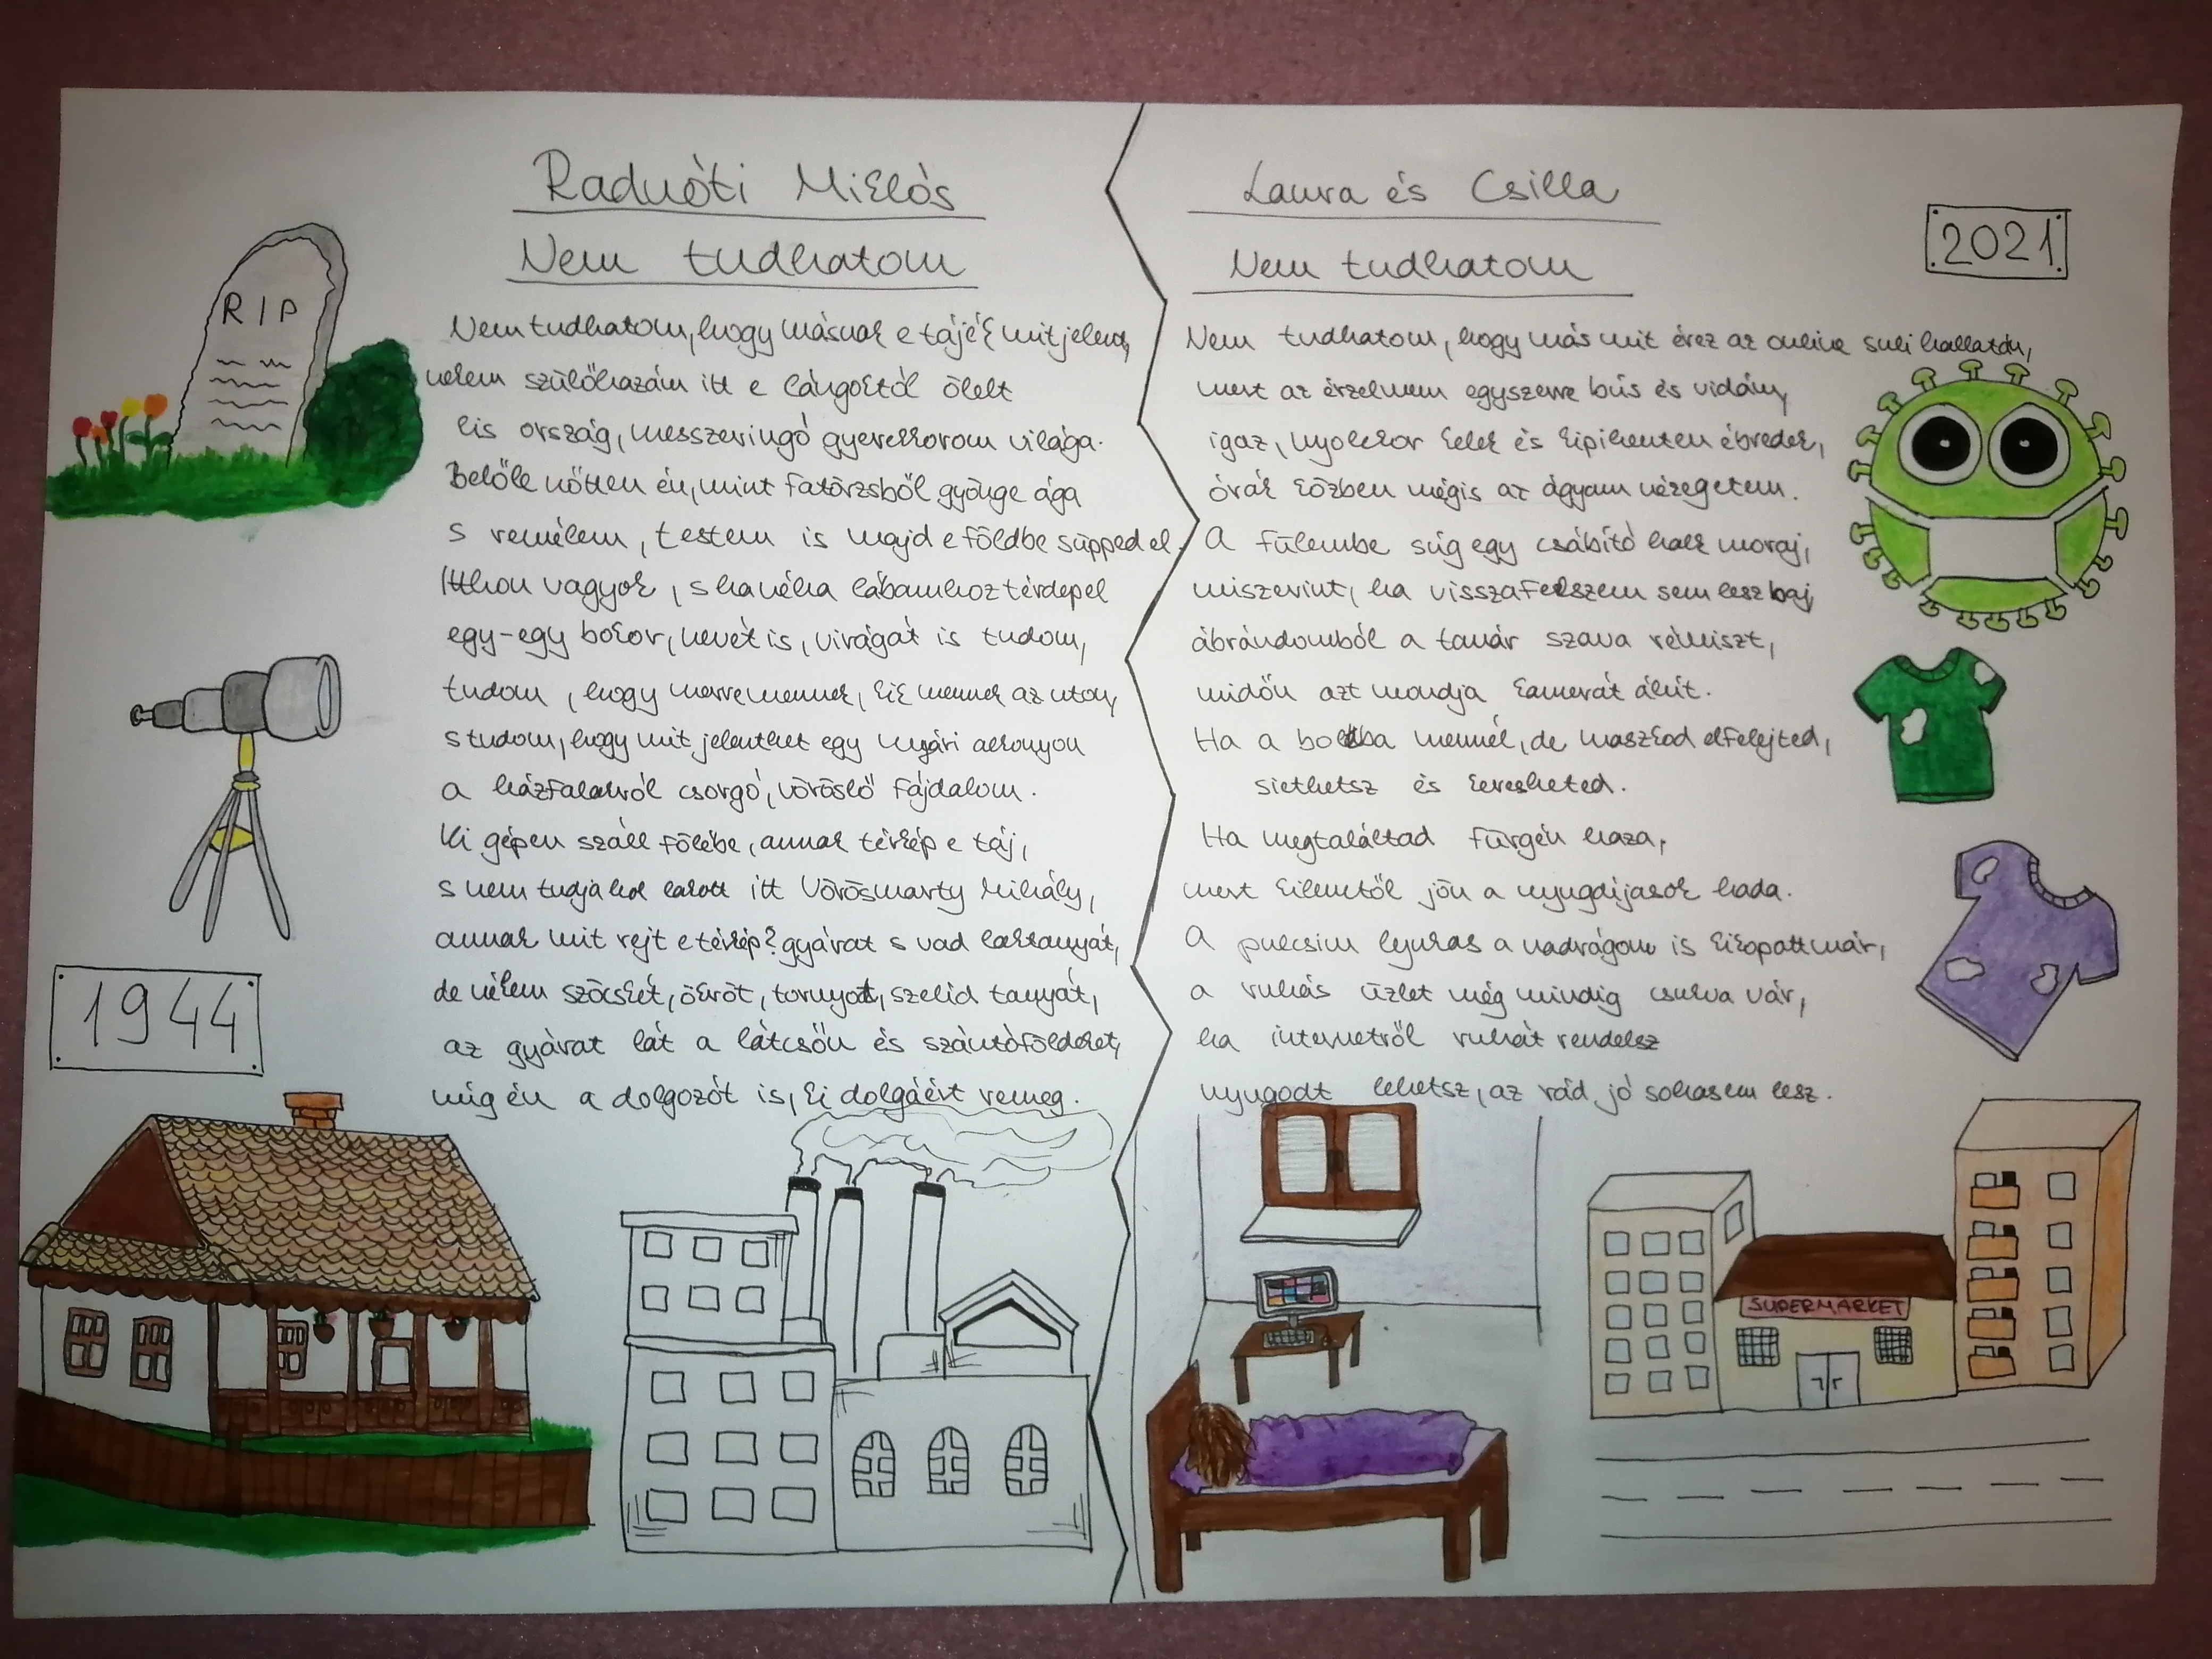 Radnóti Miklós
Nem tudhatom
RIP
Nem tudhatom, hogy másnak e tájék mit jelent,
nekem szülőhazám itt e lángoktól ölelt
kis ország, messzeringó gyerekkorom világa.
Belőle nőttem én, mint fatörzsből gyönge ága
s remélem, testem is majd e földbe süpped el.
Itthon vagyok, s ha néha lábamhoz térdepel
egy-egy bokor, nevét is, virágát is tudom,
tudom, hogy merre mennek, kik mennek az uton,
s tudom, hogy mit jelenthet egy nyári alkonyon
a házfalakról csorgó, vöröslő fájdalom.
Ki gépen száll fölébe, annak térkép e táj,
s nem tudja hol lakott itt Vörösmarty Mihály,
annak mit rejt e térkép? gyárat s vad laktanyát,
de nékem szöcskét, ökröt, tornyot, szelid tanyát,
az gyárat lát a látcsőn és szántóföldeket,
míg én a dolgozót is, ki dolgáért remeg.
1944
Laura és Csilla
Nem tudhatom
2021
Nem tudhatom, hogy más mit érez az online suli hallatán,
mert az érzelmem egyszerre bús és vidám,
igaz, nyolckor kelek és kipihenten ébredek,
órák közben mégis az ágyam nézegetem.
A fülembe súg egy csábító halk moraj,
miszerint, ha visszafekszem sem lesz baj,
ábrándomból a tanár szava rémiszt,
midőn azt mondja kamerát állít.
Ha a boltba mennél, de maszkod elfelejted,
siethetsz és keresheted.
Ha megtaláltad fürgén haza,
mert kilenctől jön a nyugdíjasok hada.
A pulcsim lyukas a nadrágom is kikopott már,
a ruhás üzlet még mindig csukva vár,
ha internetről ruhát rendelsz
nyugodt lehetsz, az rád jó sohasem lesz.
SUPERMARKET